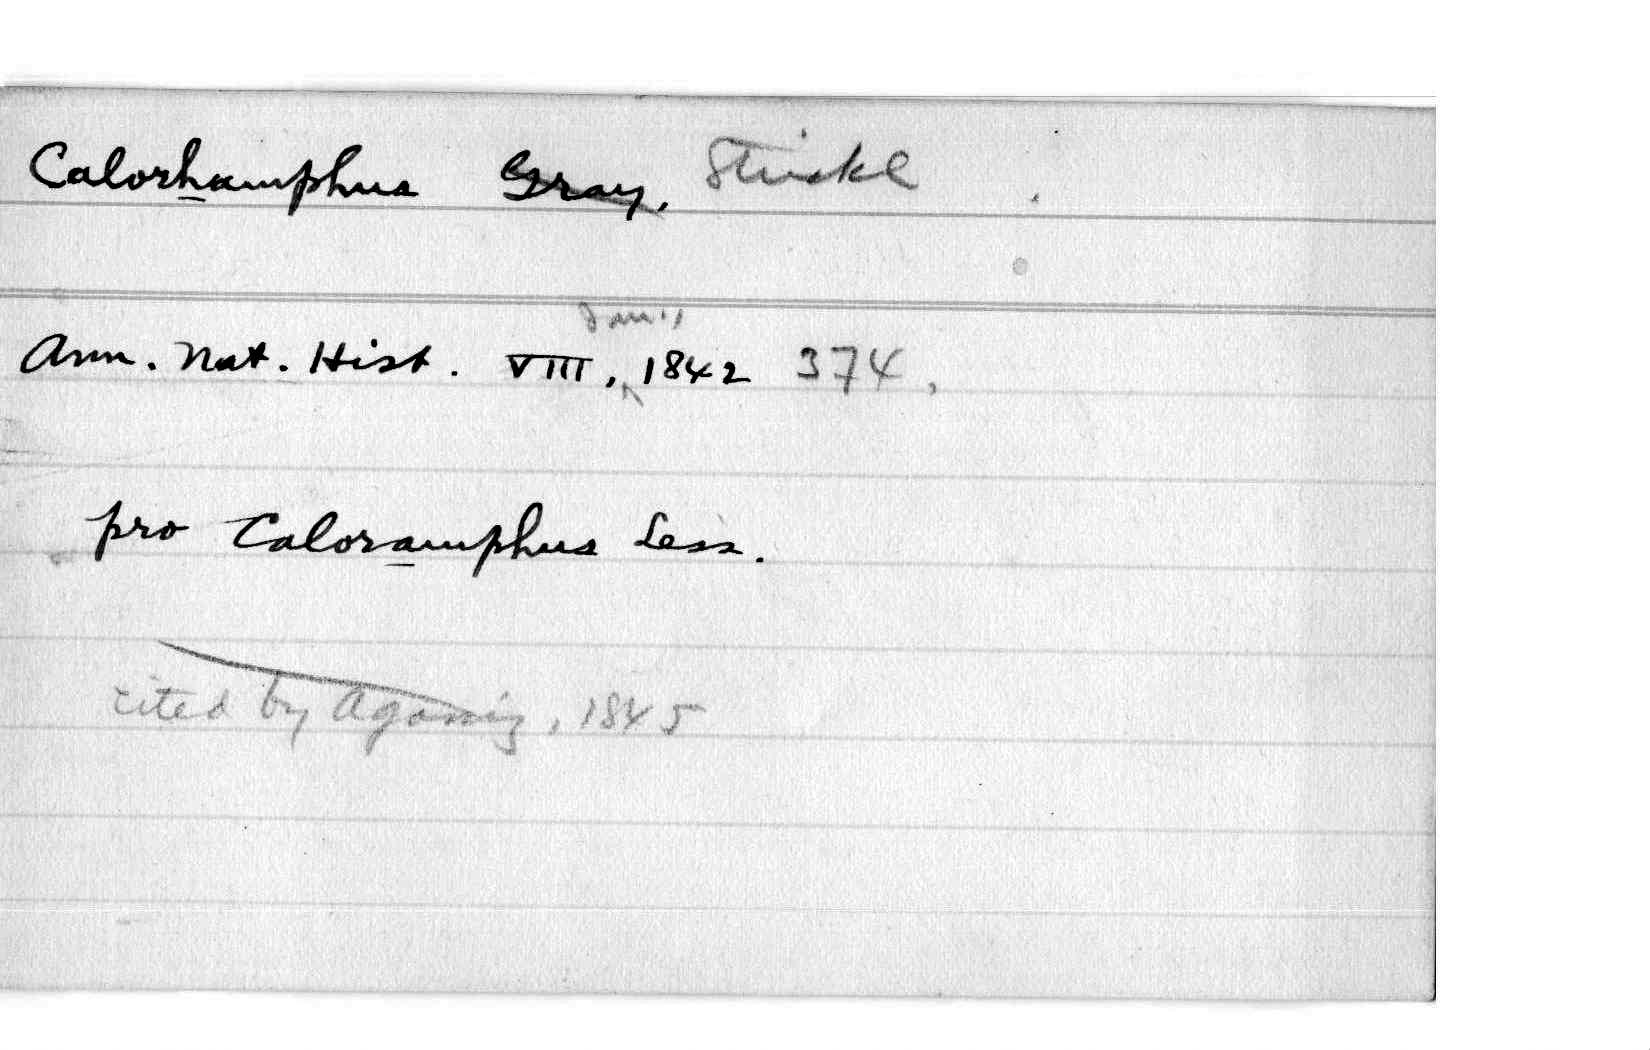 Calorhamphus Gray, Strickl
Jan.,
Ann. Nat. Hist. VIII, 1842 374,
pro Caloramphus Less.
cited by Agassiz, 1845